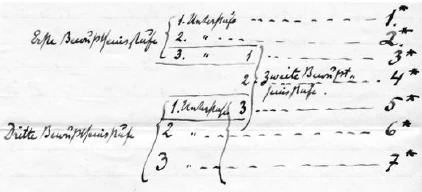 1. Unterstufe 1.*
Erste Bewußtseinsstufe 2. " 2.*
3. " 1 3*
2. zweite Bewußt- 4*
seinsstufe.
1. Unterstufe 3 5*
Dritte Bewußtseinsstufe 2 " 6*
3 " 7*